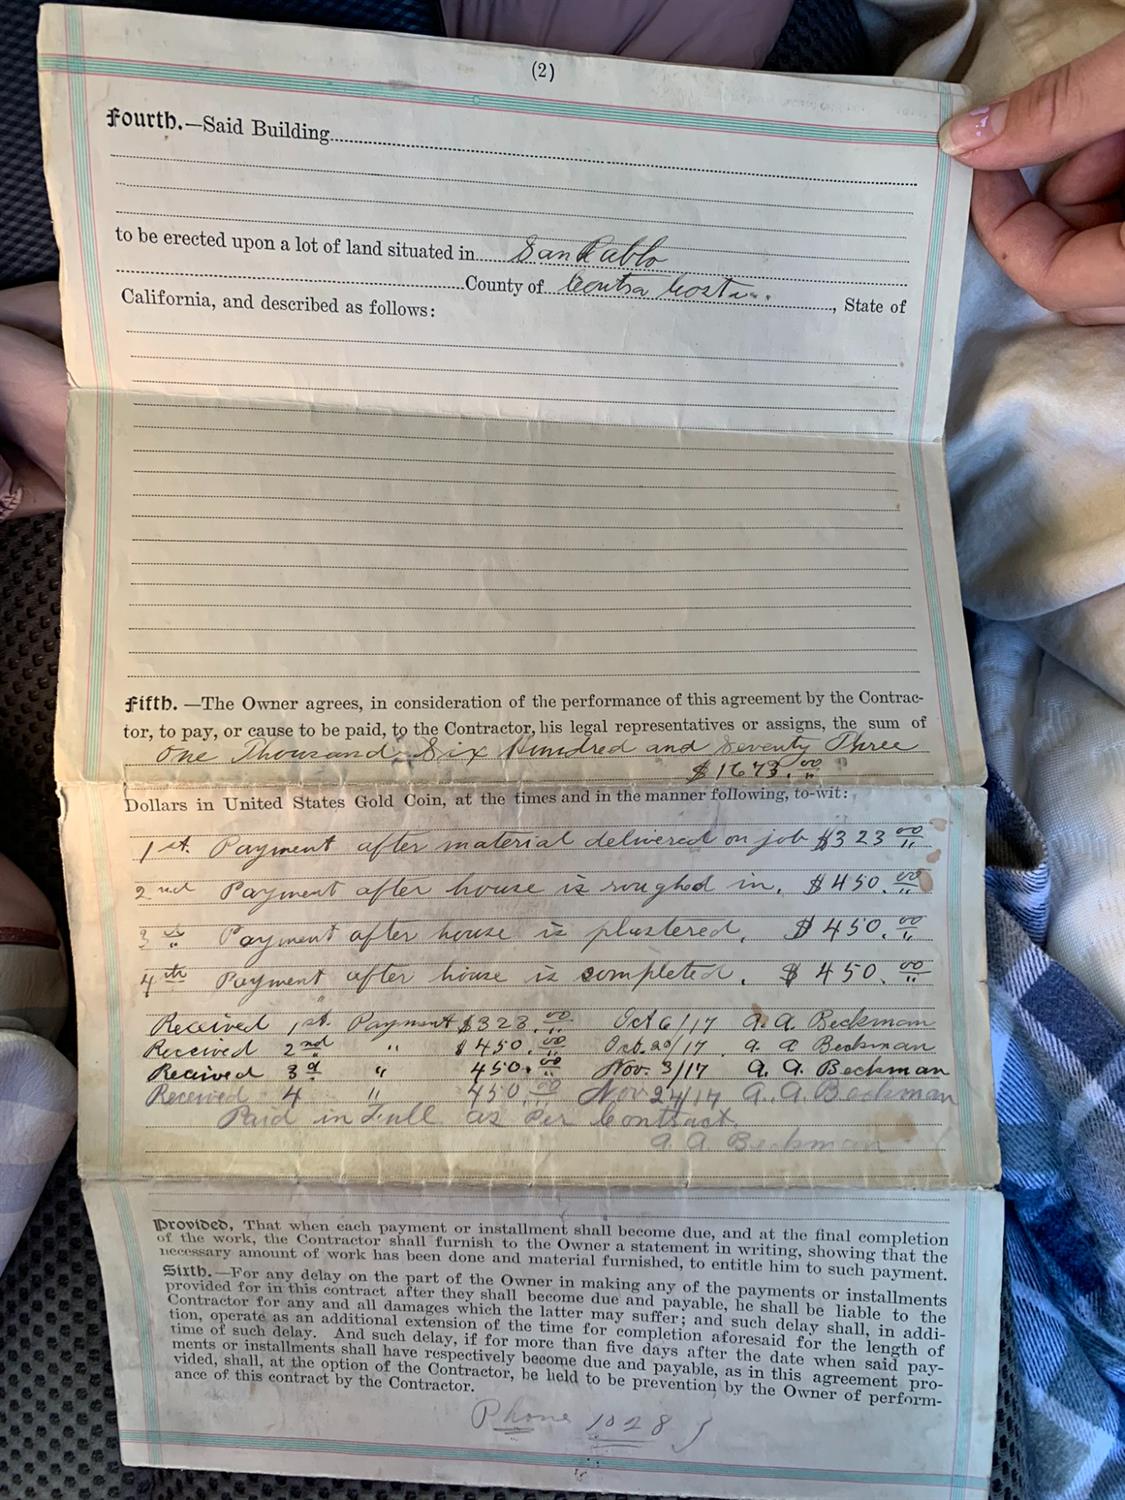 (2)
Fourth.—Said Building
to be erected upon a lot of land situated in San Pablo
County of Contra Costa, State of
California, and described as follows:
Fifth.—The Owner agrees, in consideration of the performance of this agreement by the Contrac-
tor, to pay, or cause to be paid, to the Contractor, his legal representatives or assigns, the sum of
One Thousand Six Hundred and Seventy Three
$1673.00
Dollars in United States Gold Coin, at the times and in the manner following, to-wit:
1st. Payment after material delivered on job $323.00
2nd Payment after house is roughed in. $450.00
3 Payment after house is plastered. $450.00
4th Payment after house is completed. $450.00
Received 1st. Payment $323.00 Oct 6/17 A. A. Beckman
Received 2nd " $450.00 Oct. 20/17. A. A. Beckman
Received 3d " 450.00 Nov. 3/17 A. A. Beckman
Received 4 " 450.00 Nov 24/17 A. A. Beckman
Paid in Full as Per Contract.
A. A. Beckman
Provided, That when each payment or installment shall become due, and at the final completion
of the work, the Contractor shall furnish to the Owner a statement in writing, showing that the
necessary amount of work has been done and material furnished, to entitle him to such payment.
Sixth.—For any delay on the part of the Owner in making any of the payments or installments
provided for in this contract after they shall become due and payable, he shall be liable to the
Contractor for any and all damages which the latter may suffer; and such delay shall, in addi-
tion, operate as an additional extension of the time for completion aforesaid for the length of
time of such delay. And such delay, if for more than five days after the date when said pay-
ments or installments shall have respectively become due and payable, as in this agreement pro-
vided, shall, at the option of the Contractor, be held to be prevention by the Owner of perform-
ance of this contract by the Contractor.
Phone 1028 J